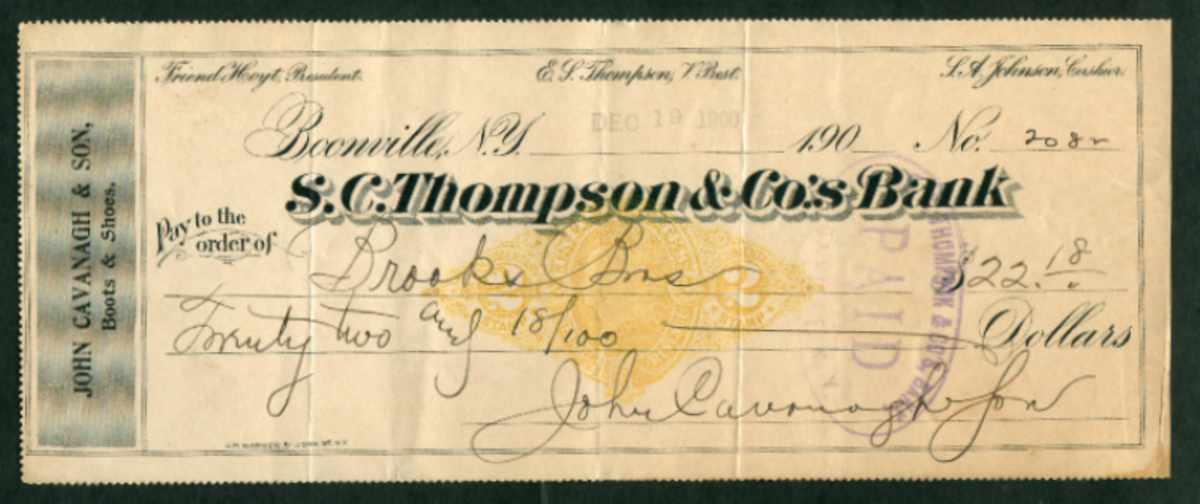 Friend Hoyt, President. E. S. Thompson, V. Prest. S. A. Johnson, Cashier.
Boonville, N.Y. DEC 19 1900 190 No. 2082
S. C. Thompson & Co's Bank
Pay to the order of Brooks Bros $22.18
Twenty two and 18/100 Dollars
John Cavanagh & Son
JOHN CAVANAGH & SON,
Boots & Shoes.
PAID
2 2